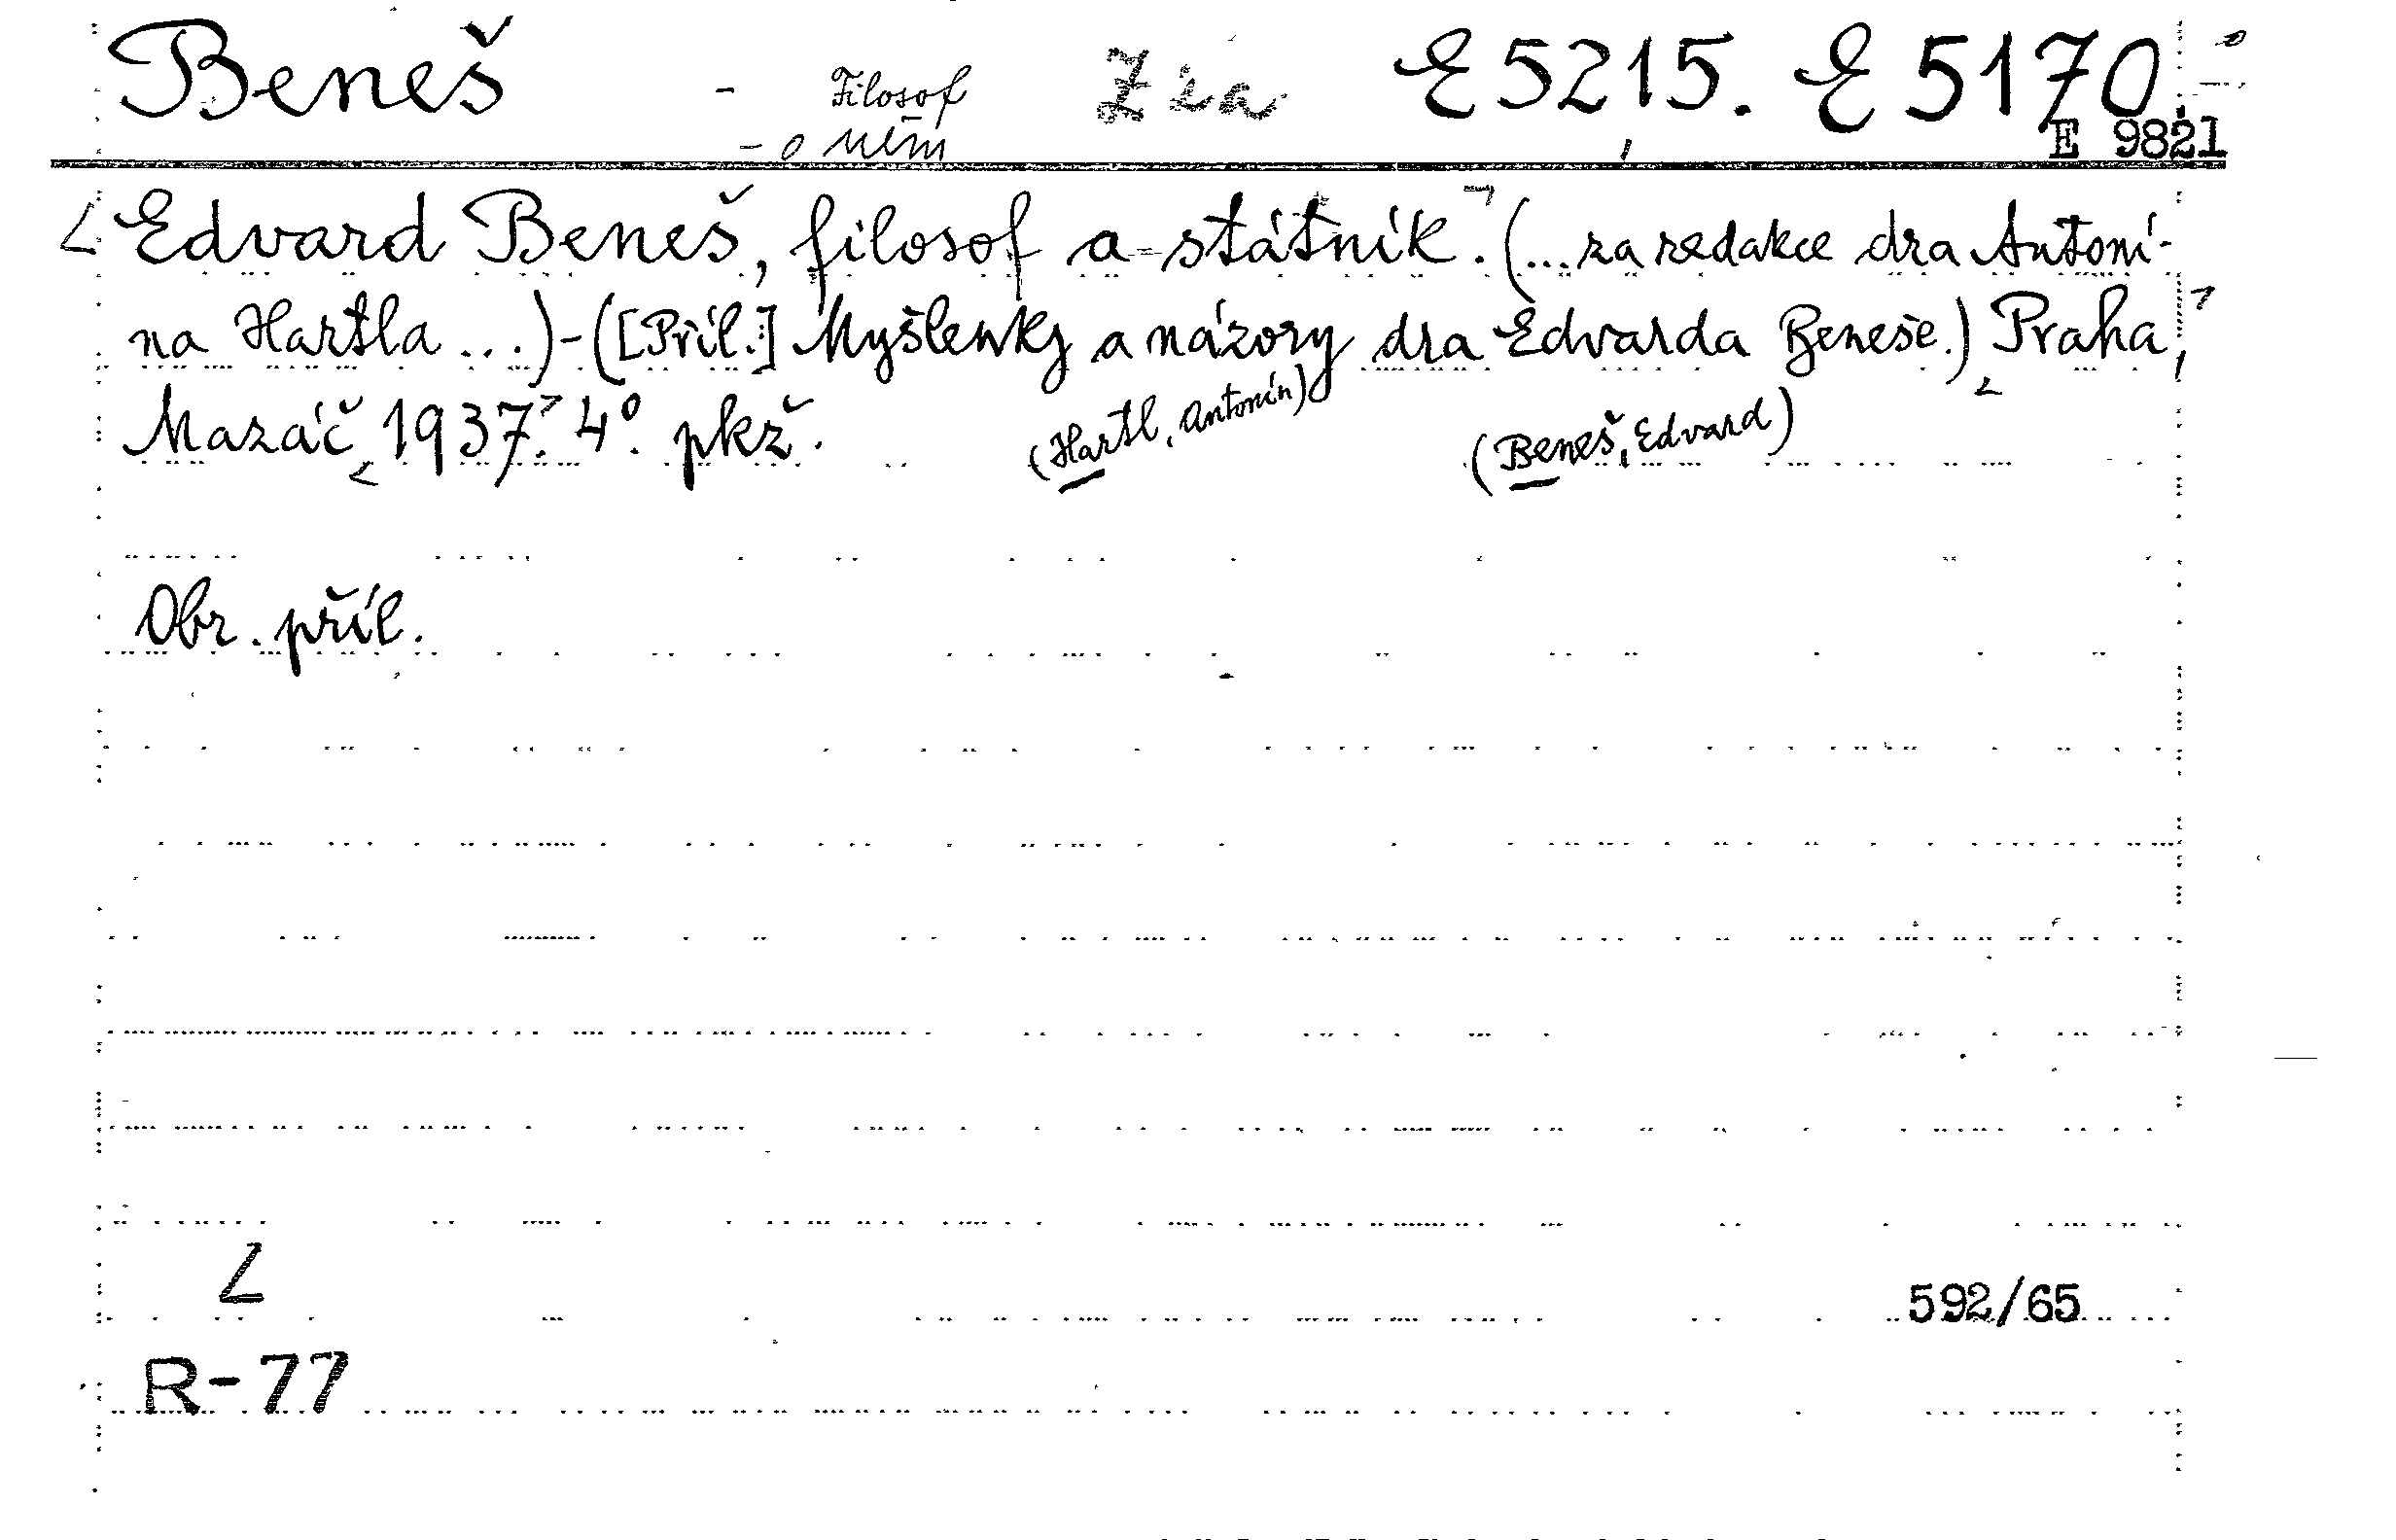 Beneš - Filosof E 5215. E 5170,
- o něm E 9821
Edvard Beneš, filosof a státník. (... za redakce dra Antoní-
na Hartla ...) - ([Příl.] Myšlenky a názory dra Edvarda Beneše.) Praha,
Mazáč 1937. 4°. pkž.
(Hartl, Antonín)
(Beneš, Edvard)
Obr. příl.
Z
592/65
R-77